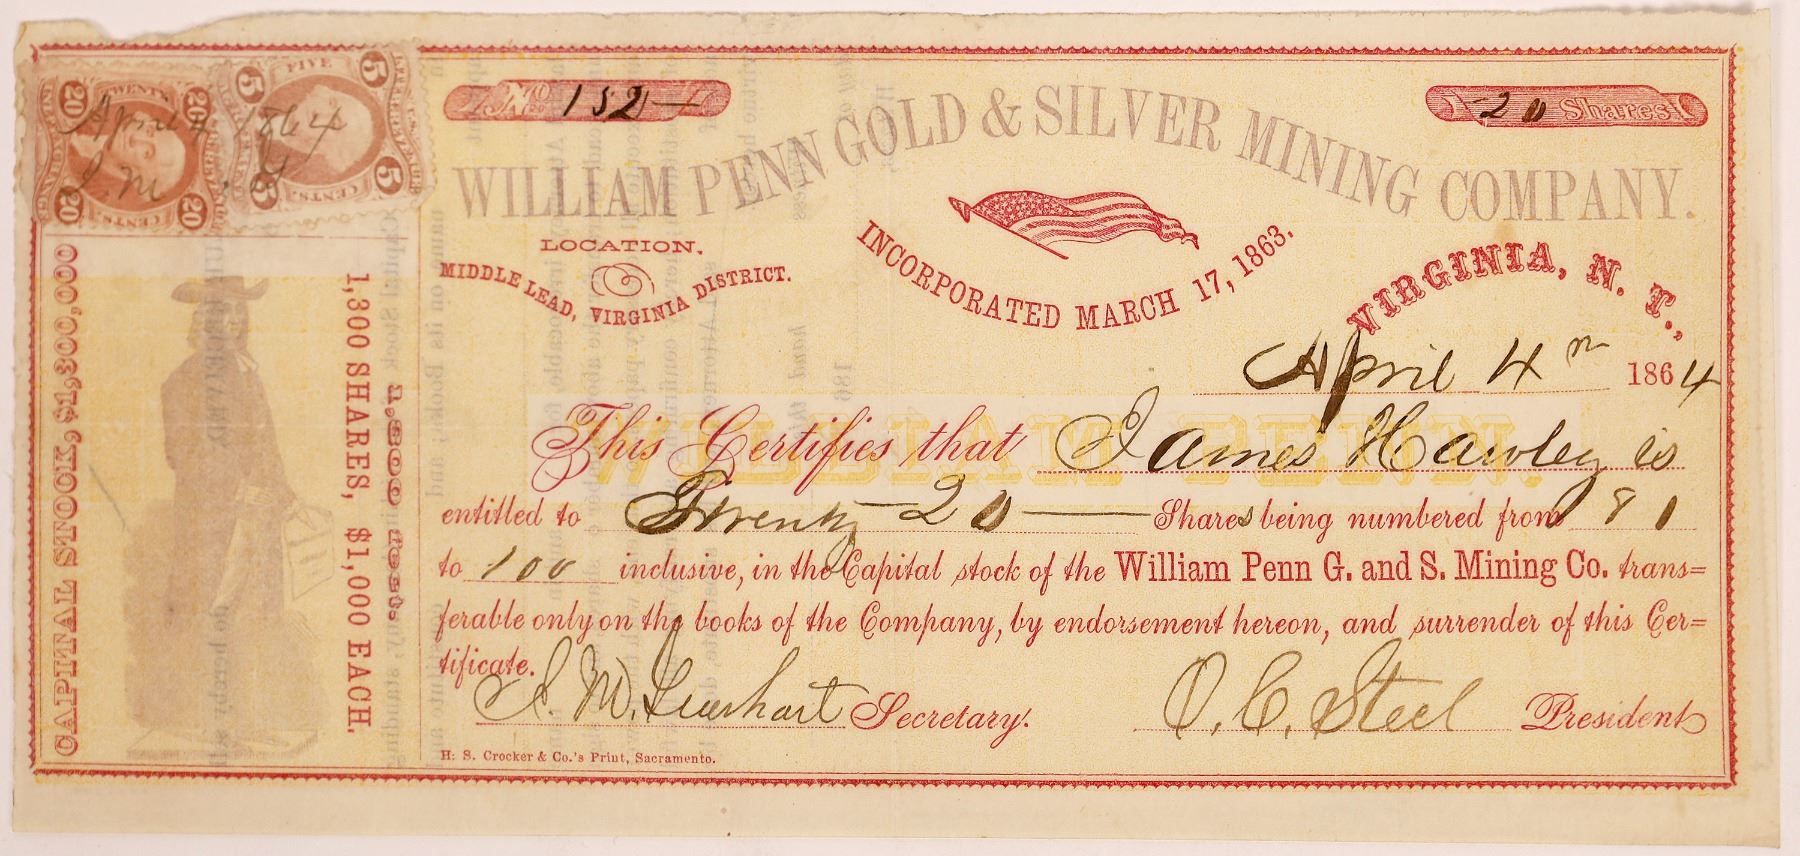 TWENTY
20 20
CENTS.
20 20
FIVE
5 5
CENTS.
5
U.S. INTER. REV.
April 4 1864
CAPITAL STOCK, $1,300,000
1,300 SHARES, $1,000 EACH.
1,300 feet.
No 152
20 Shares
WILLIAM PENN GOLD & SILVER MINING COMPANY.
LOCATION.
MIDDLE LEAD, VIRGINIA DISTRICT.
INCORPORATED MARCH 17, 1863.
VIRGINIA, N. T.,
April 4th 1864
WILLIAM PENN.
This Certifies that James Hawley is
entitled to Twenty 20 Shares being numbered from 81
to 100 inclusive, in the Capital stock of the William Penn G. and S. Mining Co. trans=
ferable only on the books of the Company, by endorsement hereon, and surrender of this Cer=
tificate.
Secretary.
O. C. Steel President
H. S. Crocker & Co.'s Print, Sacramento.